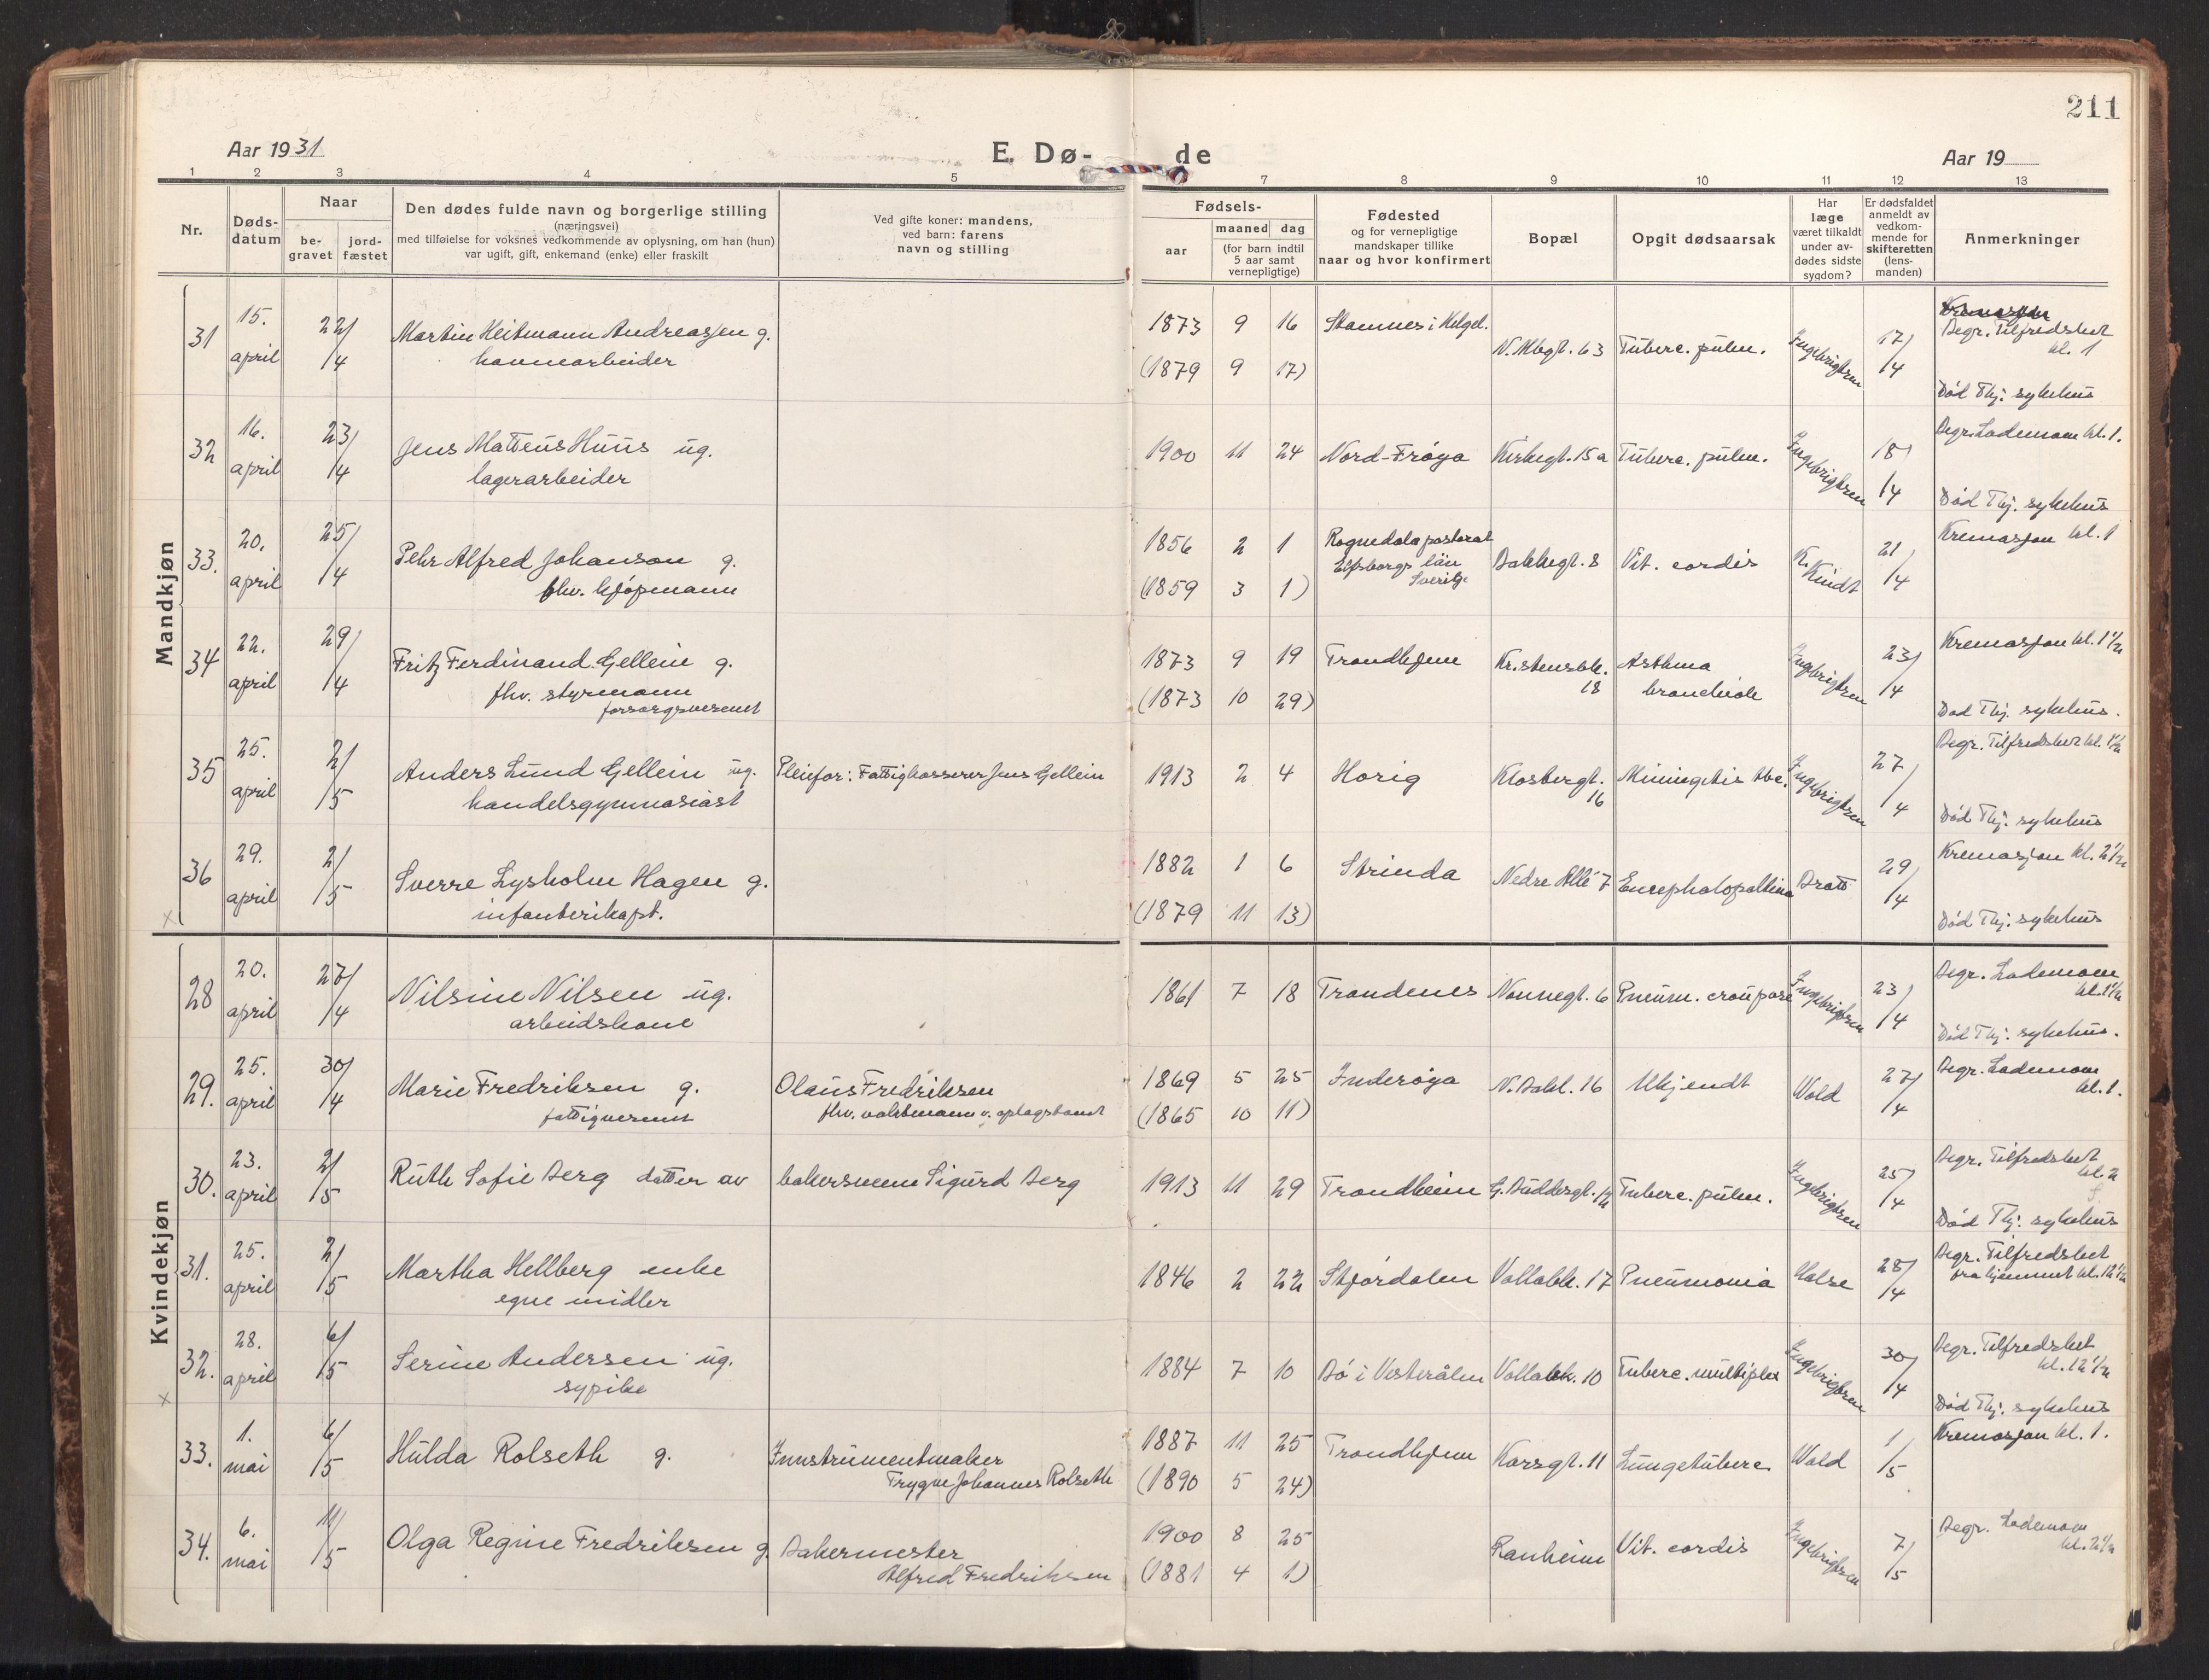 211
Aar 1931
E. Dø- de
Aar 19
1 2 3 4 5 7 8 9 10 11 12 13
Nr.
Døds-
datum
Naar
be-
gravet
jord-
fæstet
Den dødes fulde navn og borgerlige stilling
(næringsvei)
med tilføielse for voksnes vedkommende av oplysning, om han (hun)
var ugift, gift, enkemand (enke) eller fraskilt
Ved gifte koner: mandens,
ved barn: farens
navn og stilling
Fødsels-
aar
maaned dag
(for barn indtil
5 aar samt
vernepligtige)
Fødested
og for vernepligtige
mandskaper tillike
naar og hvor konfirmert
Bopæl
Opgit dødsaarsak
Har
læge
været tilkaldt
under av-
dødes sidste
sygdom?
Er dødsfaldet
anmeldt av
vedkom-
mende for
skifteretten
(lens-
manden)
Anmerkninger
Mandkjøn
31
15.
april
22/
/4
Martin Heitmann Andreassen g.
havnearbeider
1873 9 16
(1879 9 17)
Stamnes i Helgel.
63
Tuberc. pulm.
Ingebrigtsen
17/
/4
Begr. Tilfredshet
kl. 1
Død Thj. sykehus
32
16.
april
23/
/4
Jens Matteus Huus ug.
lagerarbeider
1900 11 24
Nord-Frøya
Kirkegt. 15a
Tuberc. pulm.
Ingebrigtsen
18/
/4
Begr. Lademoen kl. 1.
Død Thj. sykehus
33.
20.
april
25/
/4
Pehr Alfred Johanson g.
fhv. kjøpmann
1856 2 1
(1859 3 1)
Rognedala pastorat
Elfsborgs län
Sverige
Bakkegt. 8
Vit. cordis
K.
Kindt
21
/4
Kremasjon kl. 1
34
22.
april
29/
/4
Fritz Ferdinand Gellein g.
fhv. styrmann
forsorgsvesenet
1873 9 19
(1873 10 29)
Trondhjem
Kr.stensbk.
18
Asthma
bronchiale
Ingebrigtsen
23/
/4
Kremasjon kl. 1 1/2
Død Thj. sykehus.
35
25.
april
2/
/5
Anders Lund Gellein ug.
handelsgymnasiast
Pleiefor: Fattigkasserer Jens Gellein
1913 2 4
Horig
Klosbergt.
16
Miningitis tbc.
Ingebrigtsen
27
/4
Begr. Tilfredshet kl. 1 1/2
Død Thj. sykehus
36
29.
april
2/
/5
Sverre Lysholm Hagen g.
infanterikapt.
1882 1 6
(1879 11 13)
Strinda
Nedre Allé 7
Bratt
29
/4
Kremasjon kl. 2 1/2
Død Thj. sykehus
x
Kvindekjøn
28
20.
april
27/
/4
Nilsine Nilsen ug.
arbeidskone
1861 7 18
Trondenes
Nonnegt. 6
Pneum. croupose
Ingebrigtsen
23/
/4
Begr. Lademoen
kl. 1 1/2
Død Thj. sykehus.
29.
25.
april
30/
/4
Marie Fredriksen g.
fattigvesenet
Olaus Fredriksen
fhv. vaktmann v. oplagstomt
1869 5 25
(1865 10 11)
Inderøya
N. Bakl. 16
Ukjendt
Wold
27/
/4
Begr. Lademoen
kl. 1.
30.
23.
april
2/
/5
Ruth Sofie Berg datter av
bakersvenn Sigurd Berg
1913 11 29
Trondheim
Tuberc. pulm.
Ingebrigtsen
25/
/4
Begr. Tilfredshet
kl. 2
Død Thj. sykehus
31.
25.
april
2/
/5
Martha Hellberg enke
egne midler
1846 2 22
Stjørdalen
Vollabk. 17
Pneumonia
Halse
28/
/4
Begr. Tilfredshet
fra hjemmet kl. 12 1/2
32.
28.
april
6/
/5
Serine Andersen ug.
sypike
1884 7 10
Bø i Vesterålen
Vollabk. 10
Tuberc. multiplex
Ingebrigtsen
30/
/4
Begr. Tilfredshet
kl. 12 1/2
Død Thj. sykehus
x
33.
1.
mai
6/
/5
Hulda Rolseth g.
Innstrumentmaker
Trygve Johannes Rolseth
1887 11 25
(1890 5 24)
Trondhjem
Korsgt. 11
Lungetuberc.
Wold
1
/5
Kremasjon kl. 1.
34.
6.
mai
11/
/5
Olga Regine Fredriksen g.
Bakermester
Alfred Fredriksen
1900 8 25
(1881 4 1)
Ranheim
Vit. cordis
Ingebrigtsen
7/
/5
Begr. Lademoen
kl. 2 1/2